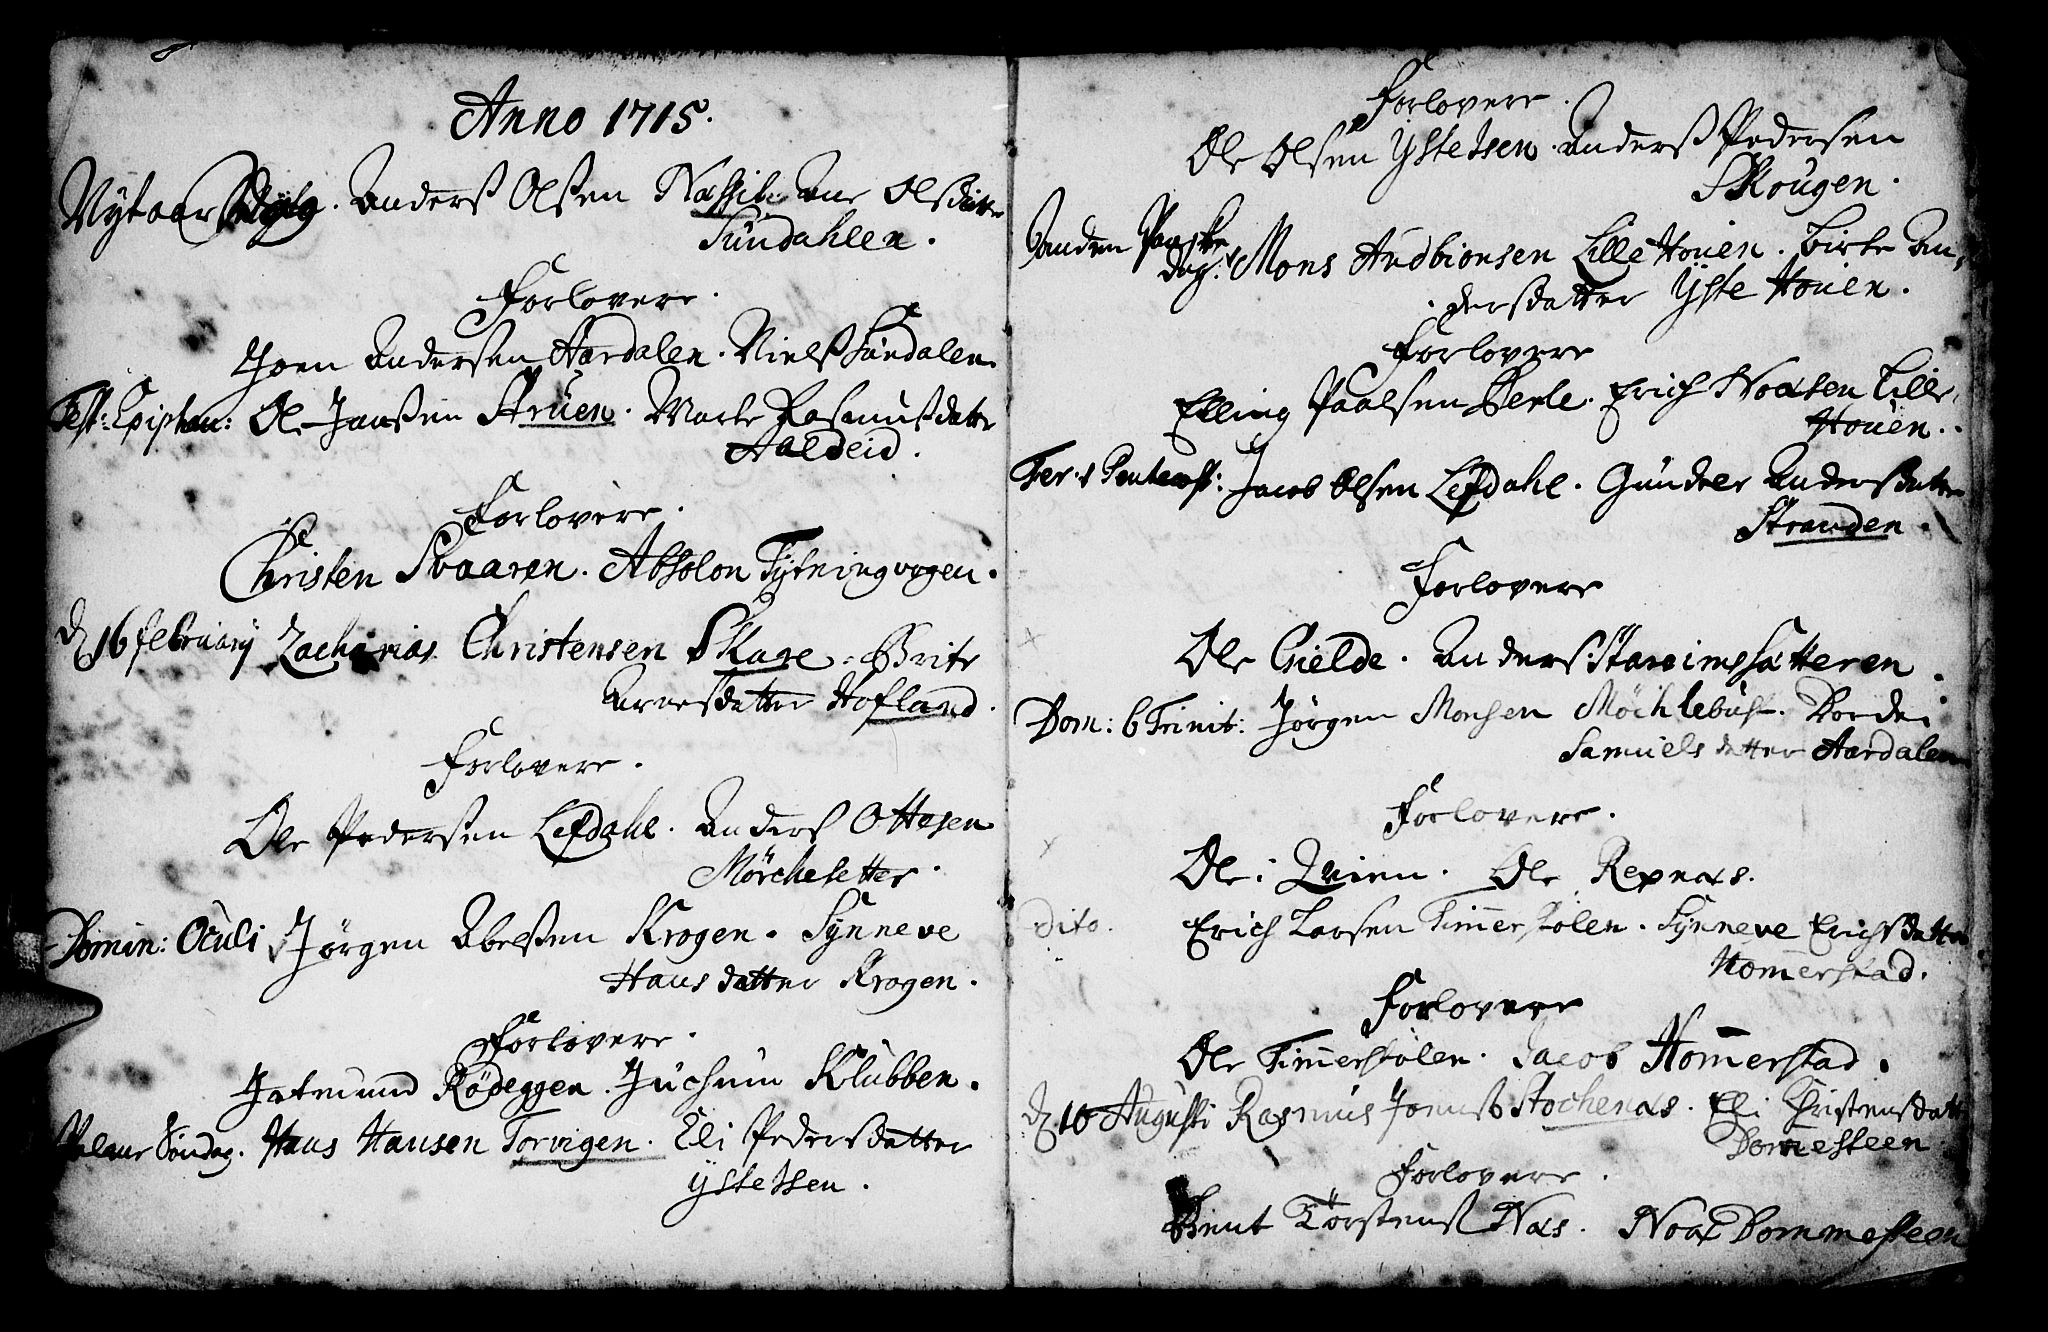 Anno 1715.
Nytaar Anderß Olßen Naßil. Ane Olsdatter
Sundahlen.
Forlovere.
Joen Andersen Aardalen. Nielß Sundalen.
Fest: Epiphan: Ole Janßen Struen. Marte Rasmußdatter
Aaldeid.
Forlovere.
Christen Svaaren. Absolon Tytningvogen.
d 16 february Zacharias Christensen Skare. Brite
Arnesdatter Hofland.
Forlovere.
Ole Pederßen Lefdahl. Anderß Ottesen
Mörchesetter.
Domin: Oculi Jörgen Abelßen Krogen. Synneve
Hans datter Krogen.
Forlovere.
Jetmund Rödeggen. Juchum Klubben.
Palme Söndag. Hans Hansen Torvigen. Eli Pedersdatter
Ystetsen.
Forlovere.
Ole Olsen Ystetsen. Anderß Pedersen
Skougen.
Anden Paaske
dag. Mons Audbionsen Lille Houen. Birte An,
dersdatter Yste Houen.
Forlovere
Elling Paalsen Berle. Erich Noæsen Lille,
Houen.
Fer. 1 Pentecost: Jacob Olsen Lefdahl. Gunder Andersdatter
Stranden.
Forlovere
Ole Hielde. Anders Stareimssætteren.
Dom: 6 Trinit: Jörgen Monsen Möchlebust. Dordei
Samuels datter Aardalen
Forlovere.
Ole i Qvien. Ole Repnæs.
Dito. Erich Larsen Timerstölen. Synneve Erichsdatter
Homerstad.
Forlovere
Ole Timerstölen. Jacob Homerstad.
d 10 Augusti Rasmus Jonsß Stochenæs. Eli Christensdatt
Domesteen
Forlovere.
Bent Torstenß Næs. Noæ Dommesteen